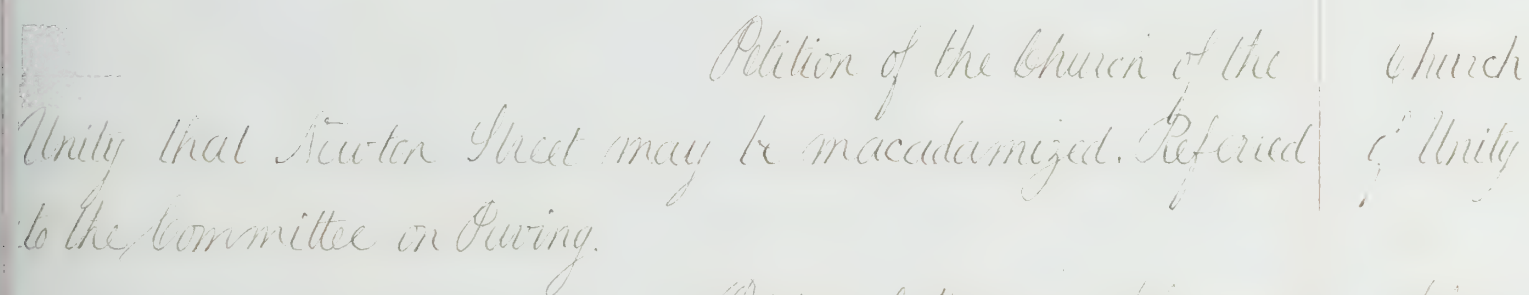 Petition of the Church of the
Unity that Newton Street may be macadamized. Referred
to the Committee on Paving.
Church
of Unity